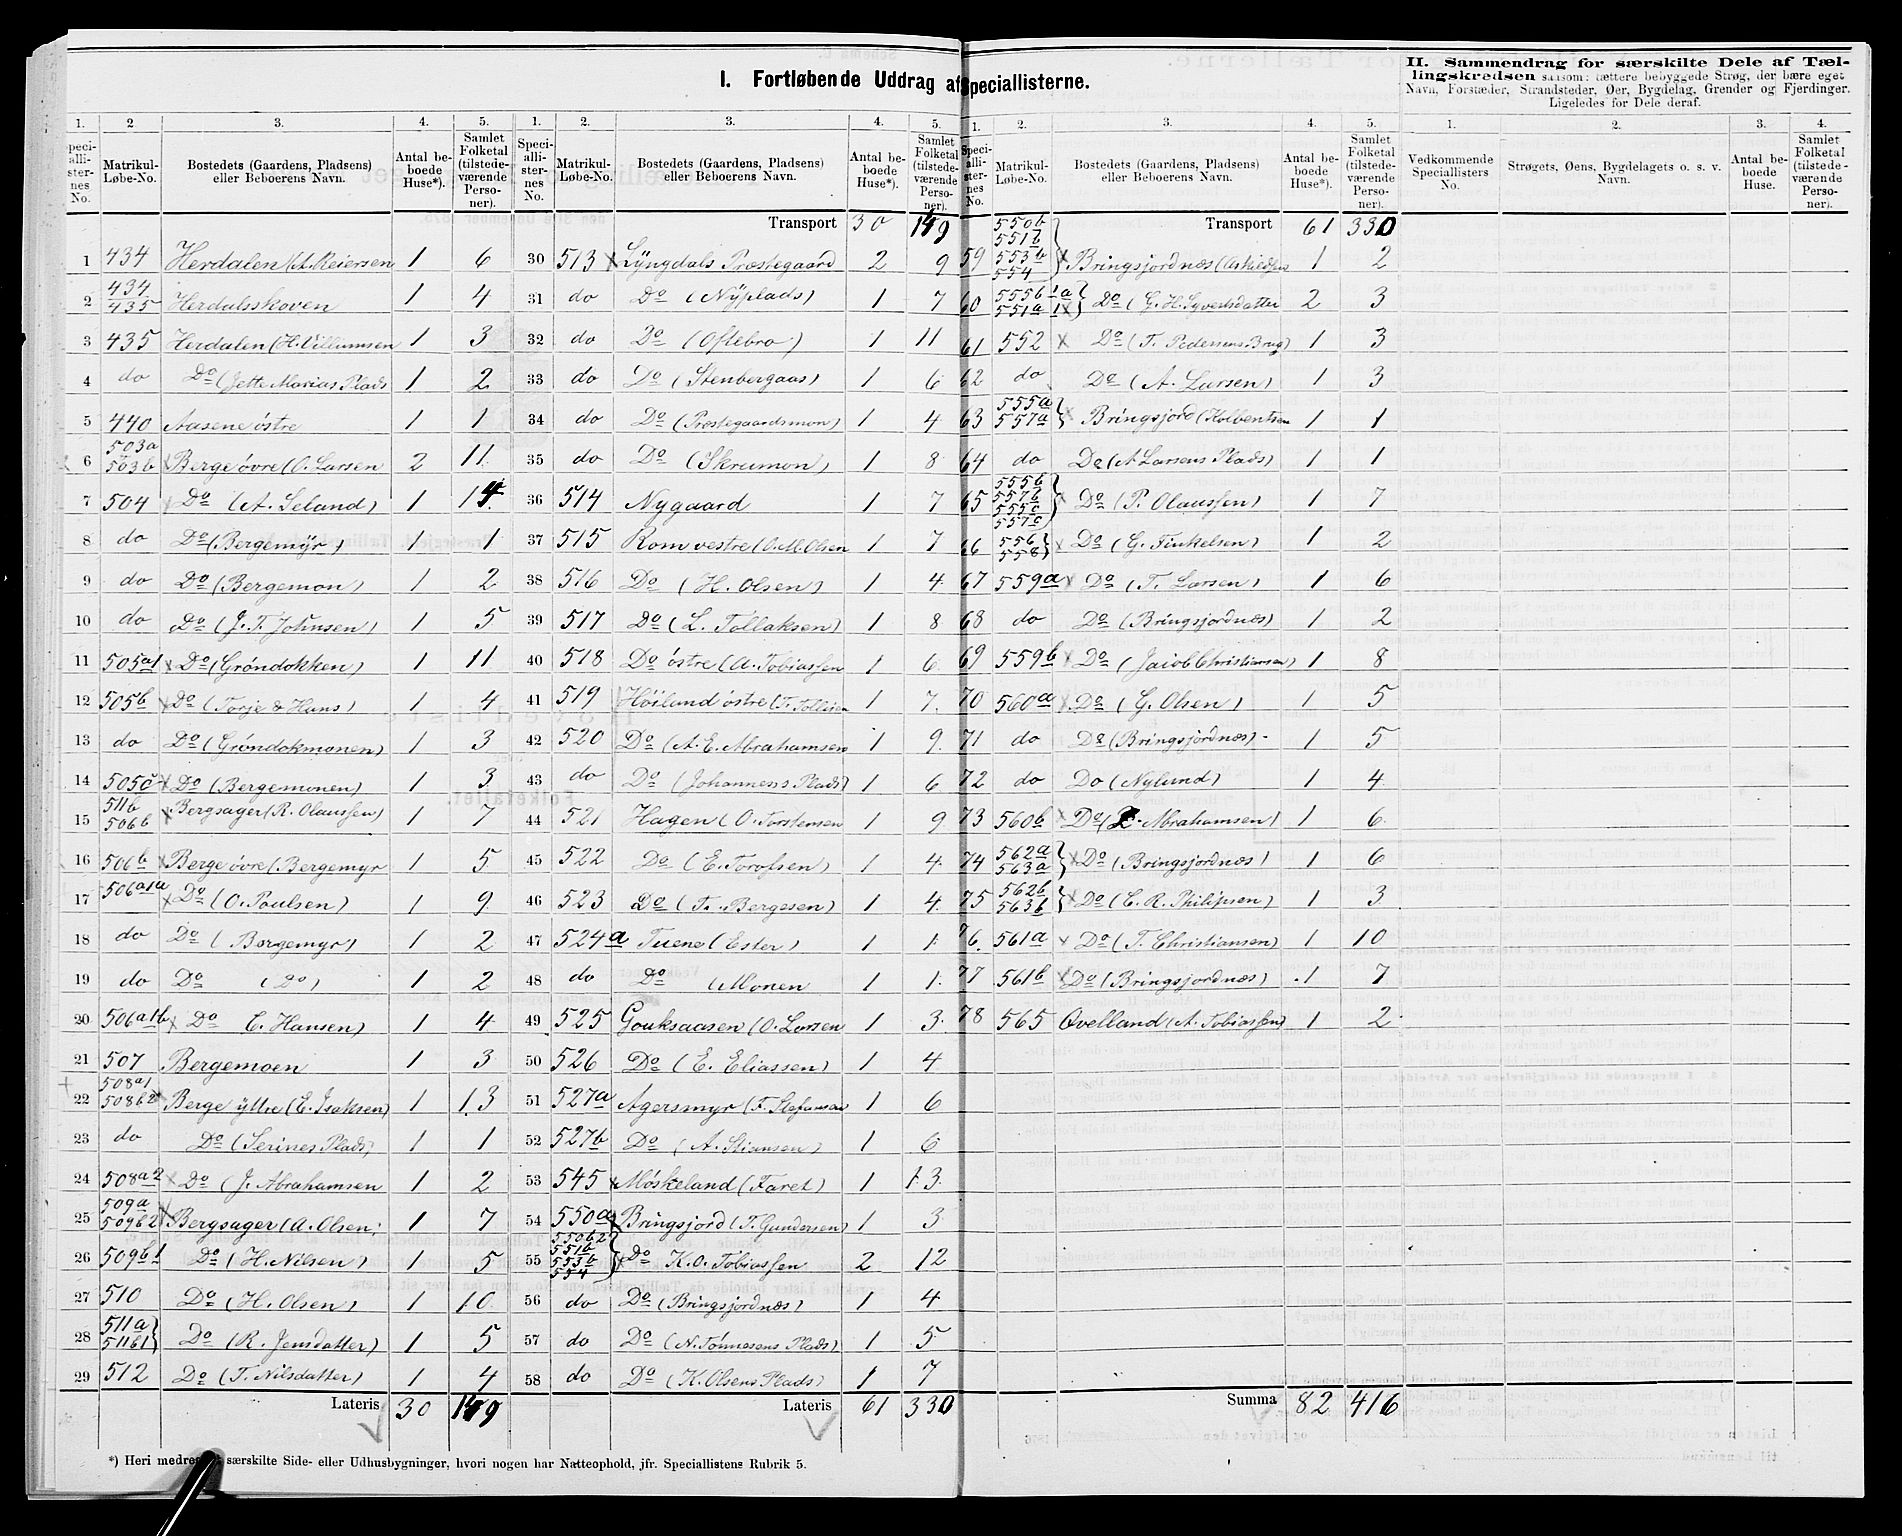 I. Fortløbende Uddrag af Speciallisterne.
II. Sammendrag for særskilte Dele af Tællingskredsen saasom: tættere bebyggede Strøg, der bære eget
Navn, Forstæder, Strandsteder, Øer, Bygdelag, Grender og Fjerdinger.
Ligeledes for Dele deraf.
1. 2 3. 4. 5.
Speciallisternes No. Matrikul-Løbe-No. Bostedets (Gaardens, Pladsens) eller Beboerens Navn. Antal beboede Huse*). Samlet Folketal (tilstedeværende Personer).
1 434 Herdalen (A. Reiersen 1 6
2 434 435 Herdalsskoven 1 4
3 435 Herdalen (H. Villumsen 1 3
4 do Do (Jette Marias Plads 1 2
5 440 Aasene østre 1 1
6 503a 503b Berge øvre (O. Larsen 2 11
7 504 Do (A. Seland) 1 14
8 do Do (Bergemyr) 1 1
9 do Do (Bergemon) 1 2
10 do Do (J. T. Johnsen) 1 5
11 505a1 Do (Grøndokken) 1 11
12 505b Do (Torje & Hans) 1 4
13 do Do (Grøndokmonen) 1 3
14 505c Do (Bergemonen) 1 3
15 511b 506b Bergsager (R. Olaussen) 1 7
16 506b Berge øvre (Bergemyr 1 5
17 506a1a Do (O. Poulsen) 1 9
18 do Do (Bergemyr) 1 2
19 do Do (Do) 1 2
20 506a1b Do E. Hansen) 1 4
21 507 Bergemoen 1 3
22 508a1 508b2 Berge ytre (E. Isaksen) 1 13
23 do Do (Serines Plads) 1 1
24 508a2 Do (J. Abrahamsen 1 2
25 509a 509b2 Bergsager (A. Olsen 1 7
26 509b1 Do (H. Nilsen) 1 5
27 510 Do (H. Olsen) 1 10
28 511a 511b1 Do (R. Jensdatter) 1 5
29 512 Do (T. Nilsdatter) 1 4
Lateris 30 149
*) Heri medregnet særskilte Side- eller Udhusbygninger, hvori nogen har Natteophold, jfr. Speciallistens Rubrik 5.
1. 2. 3. 4. 5.
Speciallisternes No. Matrikul-Løbe-No. Bostedets (Gaardens, Pladsens) eller Beboerens Navn. Antal beboede Huse*). Samlet Folketal (tilstedeværende Personer).
Transport 30 149
30 513 Lyngdals Prestegaard 2 9
31 do Do (Nyplads) 1 7
32 do Do (Oftebro) 1 11
33 do Do (Stenbergaas) 1 6
34 do Do (Prestegaardsmon) 1 4
35 do Do (Skreumon) 1 8
36 514 Nygaard 1 7
37 515 Rom vestre (O. M. Olsen 1 7
38 516 Do (H. Olsen) 1 4
39 517 Do (L. Tollaksen) 1 8
40 518 Do østre (A. Tobiassen 1 6
41 519 Høiland østre (T. 1 7
42 520 Do (A. E. Abrahamsen 1 9
43 do Do (Johanness Plads) 1 6
44 521 Hagen (O. Torstensen 1 9
45 522 Do (E. Torofsen) 1 4
46 523 Do (T. Bergesen) 1 4
47 524a Tuene (Ester) 1 1
48 do Do (Monen 1 1
49 525 Gouksaasen (O. Larsen 1 3
50 526 Do (E. Eliassen) 1 4
51 527a Agersmyr (F. Stefansen 1 6
52 527b Do (A. Stiansen) 1 6
53 545 Møskeland (Faret) 1 13
54 550a Bringsjord (T. Gundersen) 1 3
55 550b2 551b 553b 554 Do K. O. Tobiassen 2 12
56 do Do (Bringsjordnes) 1 4
57 do Do (N. Tønnesens Plads) 1 5
58 do Do (K. Olsens Plads) 1 7
Lateris 61 330
1. 2. 3. 4. 5.
Speciallisternes No. Matrikul-Løbe-No. Bostedets (Gaardens, Pladsens) eller Beboerens Navn. Antal beboede Huse*). Samlet Folketal (tilstedeværende Personer).
Transport 61 330
59 550b 551b 553b 554 Bringsjordnæs (Askildsen 1 2
60 555b1a 551a1 Do (G. H. Syvertsdatter 2 3
61 552 Do (T. Pedersens Brug) 1 3
62 do Do (A. Larsen) 1 3
63 555a 557a Bringsjord (Kolbentsen 1 1
64 do Do (A Larsens Plads) 1 1
65 555b 557b 555c 557c Do (P. Olaussen) 1 7
66 556 558 Do (G. Tinkelsen) 1 2
67 559a Do (T. Larsen) 1 6
68 do Do (Bringsjordnæs) 1 2
69 559b Do (Jacob Christiansen) 1 8
70 560a Do (G. Olsen) 1 5
71 do Do (Bringsjordnæs) 1 5
72 do Do (Nylund) 1 4
73 560b Do (L. Abrahamsen) 1 6
74 562a 563a Do (Bringsjordnæs) 1 6
75 562b 563b Do (E. R. Philipsen) 1 3
76 561a Do (T. Christiansen) 1 10
77 561b Do (Bringsjordnæs) 1 7
78 565 Qvelland (A. Tobiassen) 1 2
Summa 82 416
1. 2. 3. 4.
Vedkommende Speciallisters No. Strøgets, Øens, Bygdelagets o. s. v. Navn. Antal beboede Huse. Samlet Folketal (tilstedeværende Personer).